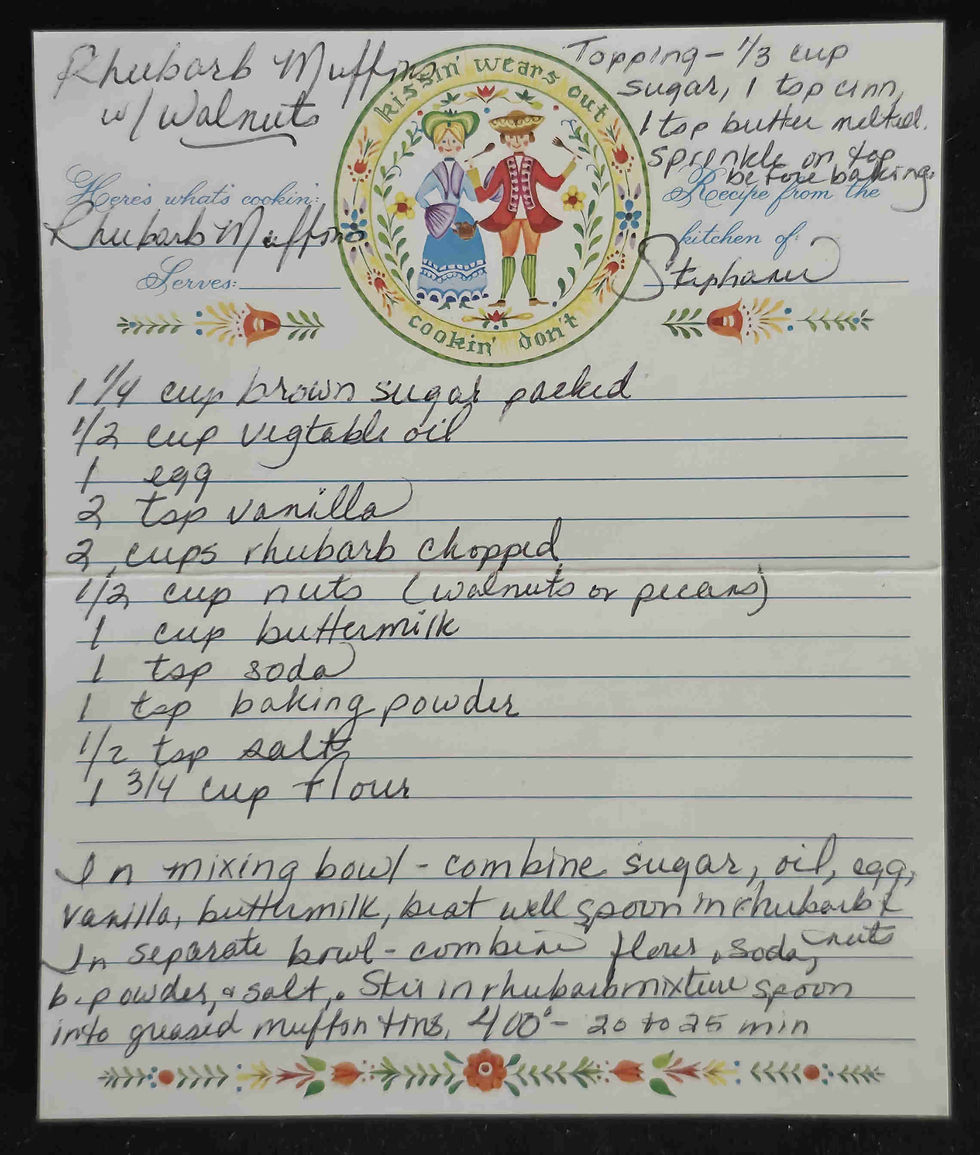 Rhubarb Muffins
w/ Walnuts
kissin' wears out
cookin' don't
Topping - 1/3 cup
sugar, 1 tsp cinn,
1 tsp butter melted.
sprinkle on top
before baking.
Here's what's cookin':
Rhubarb Muffins
Serves:
Recipe from the
kitchen of:
Stephanie
1 1/4 cup brown sugar packed
1/2 cup vegtable oil
1 egg
2 tsp vanilla
2 cups rhubarb chopped
1/2 cup nuts (walnuts or pecans)
1 cup buttermilk
1 tsp soda
1 tsp baking powder
1/2 tsp salt
1 3/4 cup flour
In mixing bowl - combine sugar, oil, egg,
vanilla, buttermilk, beat well spoon in rhubarb &
nuts
In separate bowl - combine flour, soda,
b. powder, & salt,. Stir in rhubarb mixture spoon
into greased muffon tins. 400° - 20 to 25 min